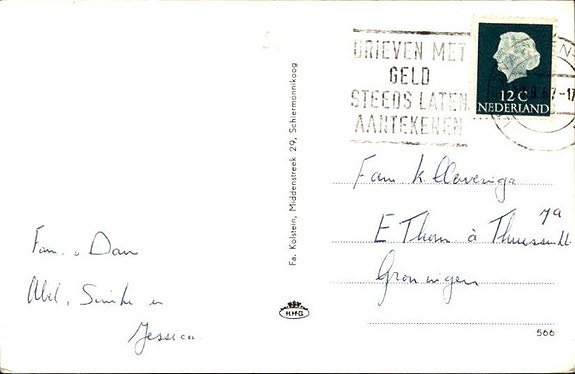 BRIEVEN MET
GELD
STEEDS LATEN
AANTEKENEN
12 C
NEDERLAND
Fa. Kolstein, Middenstreek 29, Schiermonnikoog
Fam K
E Thom à 7a
Groningen
Fam. Dam
Abel, en
Jessica
H.H.G
566